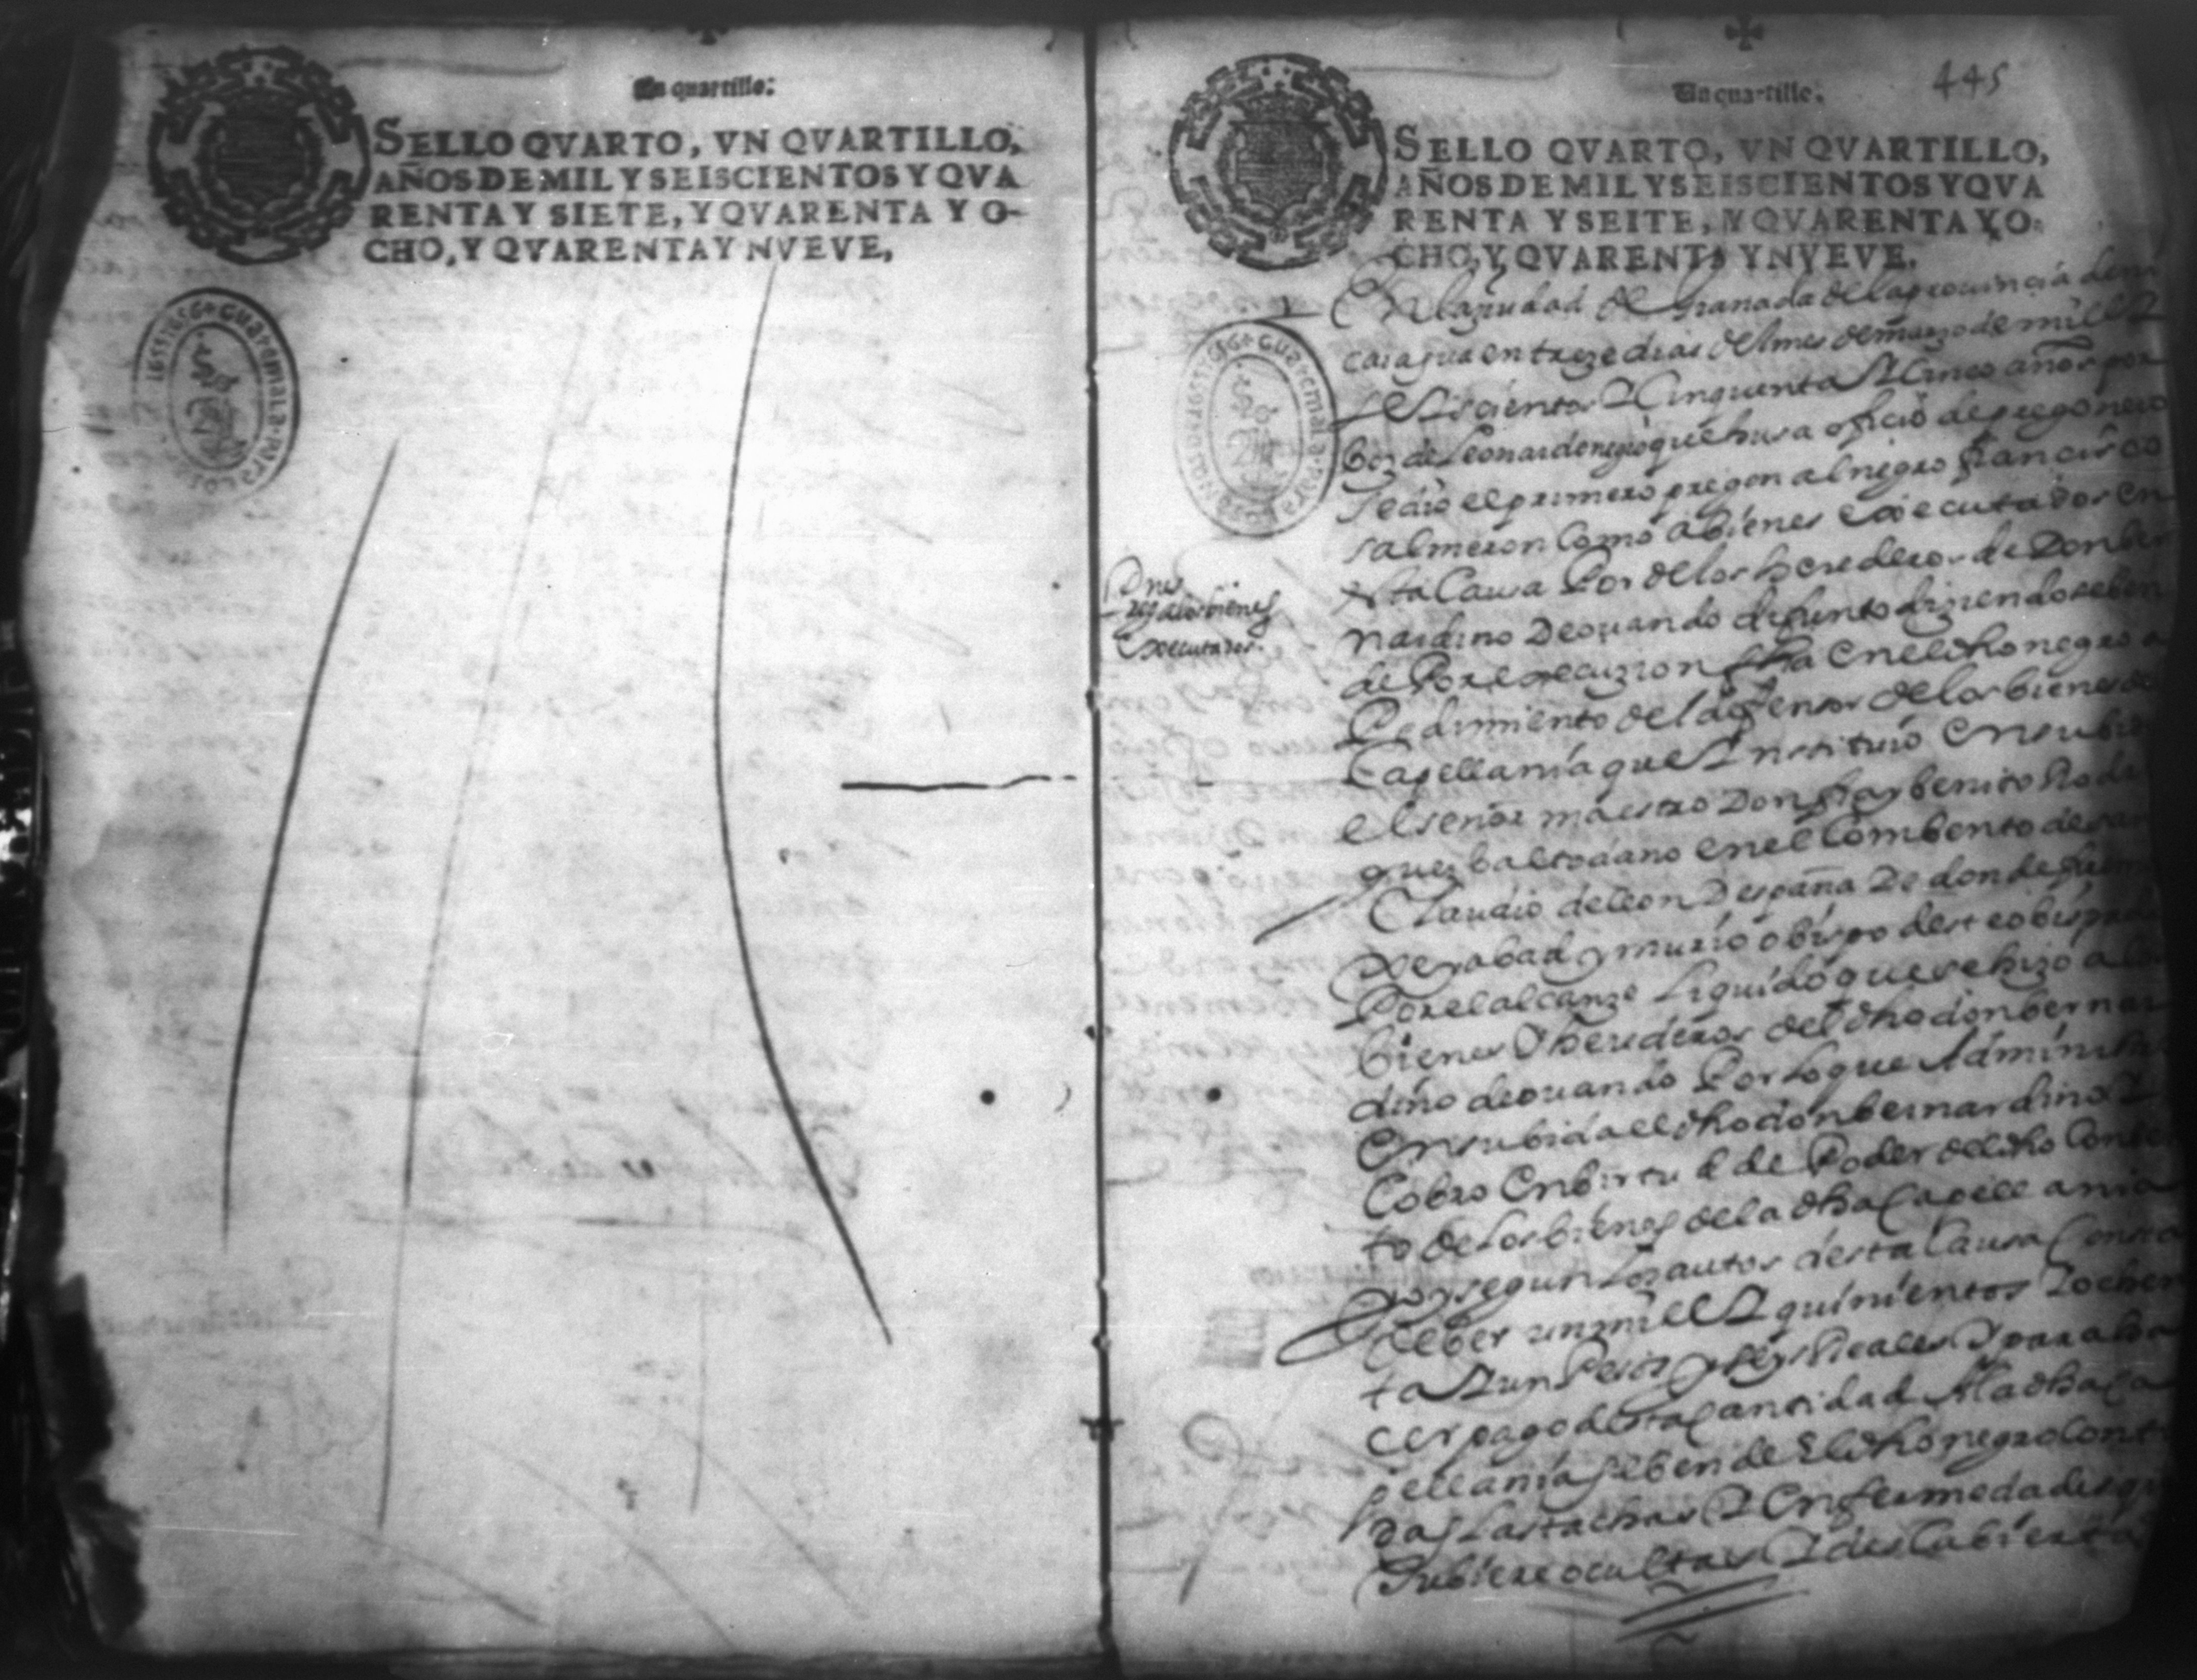 Un quartillo:
SELLO QVARTO, VN QVARTILLO,
AÑOS DE MIL Y SEISCIENTOS Y QVA
RENTA Y SIETE, Y QVARENTA Y O-
CHO, Y QVARENTA Y NVEVE,
Un quartillo.
445
SELLO QVARTO, VN QVARTILLO,
AÑOS DE MIL Y SEISCIENTOS Y QVA
RENTA Y SEITE, Y QVARENTA Y O-
CHO, Y QVARENTA Y NVEVE.
En la ziudad de Granada de la provincia de ni
caragua en treze dias del mes de marzo de mill E
seiscientos E Cinquenta E Cinco años por
boz de Leonardo negro que husa oficio de pregonero
se dio el primero pregon al negro francisco
salmeron Como a bienes executados en
esta Causa Por de los herederos de Don ber
nardino de ouando difunto diziendo se ben
de Por execuzion fha en el dho negro a
Pedimiento del defensor de los bienes de
Capellania que Instituio en su bida
el señor maestro Don fray benito Rodri
guez baltodano en el Combento de san
Claudio de leon D españa De donde
abad y murio obispo deste obispado
Por el alcanze liquido que se hizo a los
bienes y herederos del dho don bernar
dino de ouando Por lo que Administro
En su bida el dho don bernardino E
Cobro En birtud de Poder del dho Conben
to de los bienes de la dha Capellania
segun los autos desta Causa Consta
deber un mill E quinientos E ochen
ta E un Pesos y seis Reales y para ha
cer pago desta Cantidad A la dha Ca
pellania se bende El dho negro Con to
das las tachas E Enfermedades que
tubiere ocultas E descubiertas
bienes
Executados.